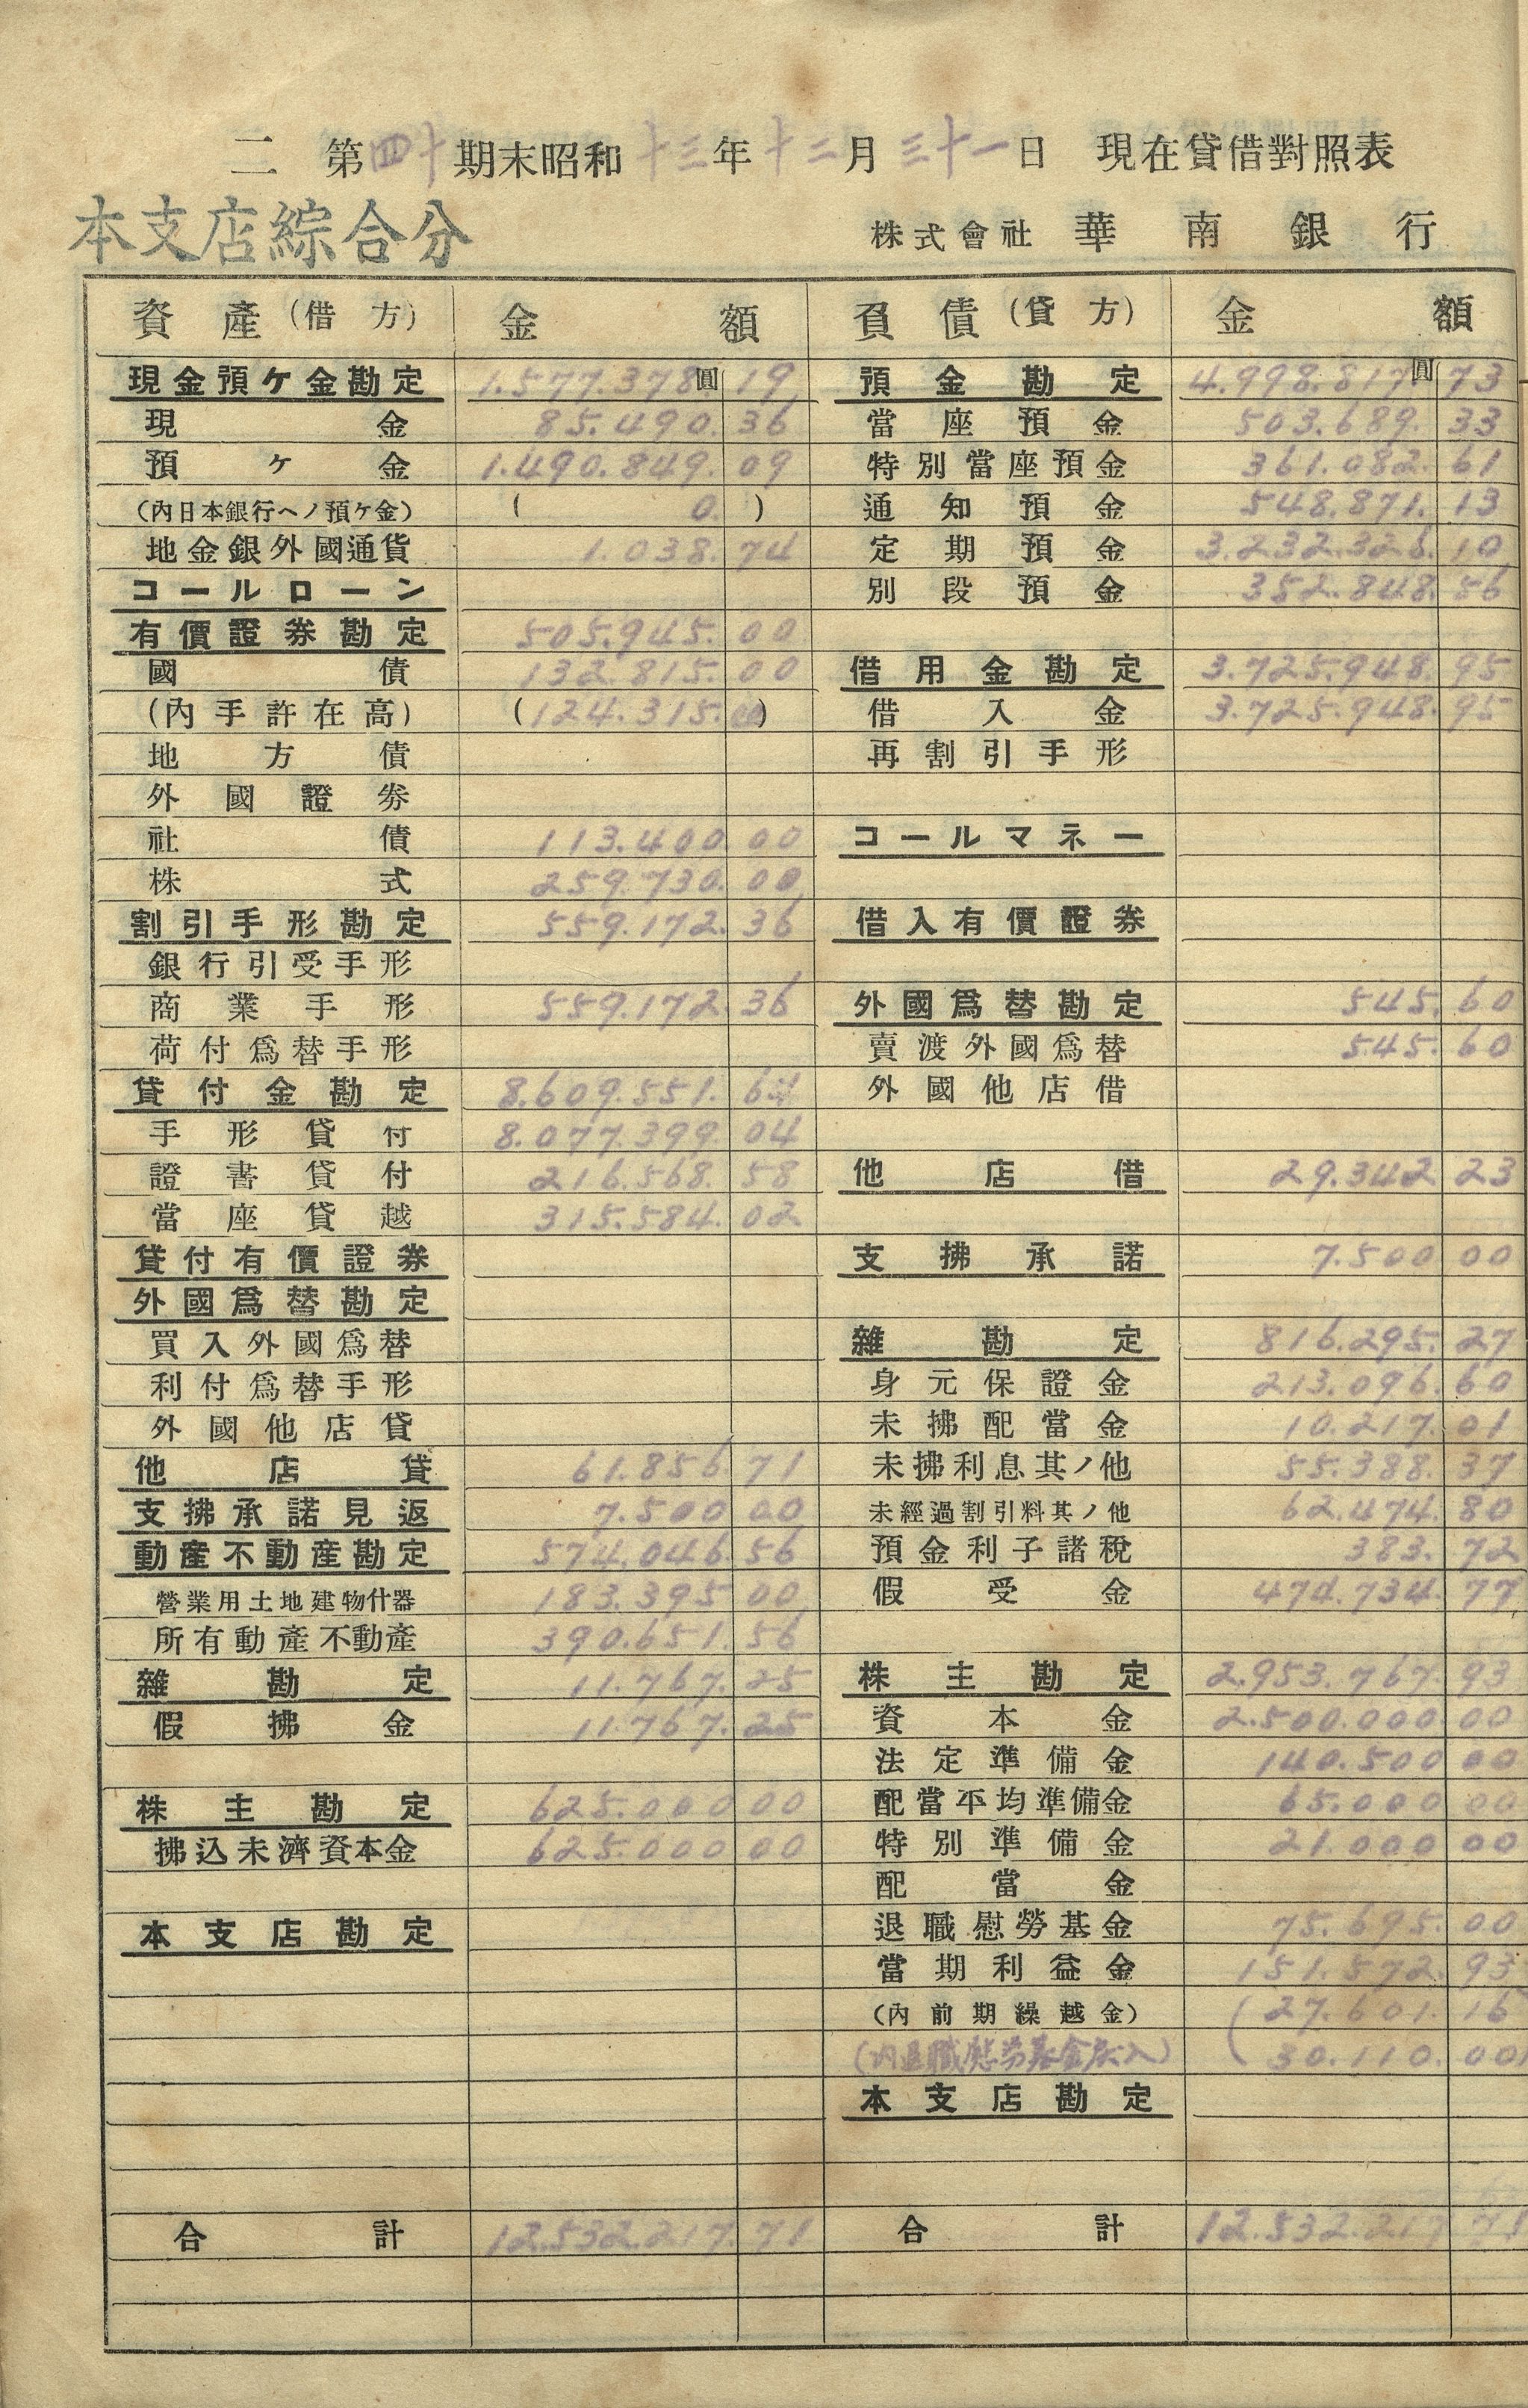 二 第四十期末昭和十三年十二月三十一日 現在貸借對照表
本支店綜合分
株式會社 華南銀行
資產(借方) 金額
現金預ケ金勘定 1.577.378圓 19
現金 85.490. 36
預ケ金 1.490.849. 09
(內日本銀行ヘノ預ケ金) ( 0. )
地金銀外國通貨 1.038. 74
コールローン
有價證券勘定 505.945. 00
國債 132.815. 00
(內手許在高) (124.315. 00)
地方債
外國證劵
社債 113.400 00
株式 259.730. 00
割引手形勘定 559.172. 36
銀行引受手形
商業手形 559.172. 36
荷付爲替手形
貸付金勘定 8.609.551. 64
手形貸付 8.077.399. 04
證書貸付 216.568. 58
當座貸越 315.584. 02
貸付有價證券
外國爲替勘定
買入外國爲替
利付爲替手形
外國他店貸
他店貸 61.856. 71
支拂承諾見返 7.500 00
動產不動產勘定 574.046. 56
營業用土地建物什器 183.395 00
所有動產不動產 390.651. 56
雜勘定 11.767. 25
假拂金 11.767. 25
株主勘定 625.000 00
拂込未濟資本金 625.000 00
本支店勘定
合計 12.532.217. 71
負債(貸方) 金額
預金勘定 4.998.817圓 73
當座預金 503.689. 33
特別當座預金 361.082. 61
通知預金 548.871. 13
定期預金 3.232.326. 10
別段預金 352.848. 56
借用金勘定 3.725.948. 95
借入金 3.725.948. 95
再割引手形
コールマネー
借入有價證券
外國爲替勘定 545. 60
賣渡外國爲替 545. 60
外國他店借
他店借 29.342 23
支拂承諾 7.500 00
雜勘定 816.295. 27
身元保證金 213.096. 60
未拂配當金 10.217. 01
未拂利息其ノ他 55.388. 37
未經過割引料其ノ他 62.474. 80
預金利子諸稅 383. 72
假受金 474.734. 77
株主勘定 2.953.767. 93
資本金 2.500.000 00
法定準備金 140.500 00
配當平均準備金 65.000 00
特別準備金 21.000 00
配當金
退職慰勞基金 75.695. 00
當期利益金 151.572. 93
(內前期繰越金) (27.601. 16
(內退職慰労基金戻入) (30.110. 00)
本支店勘定
合計 12.532.217 71